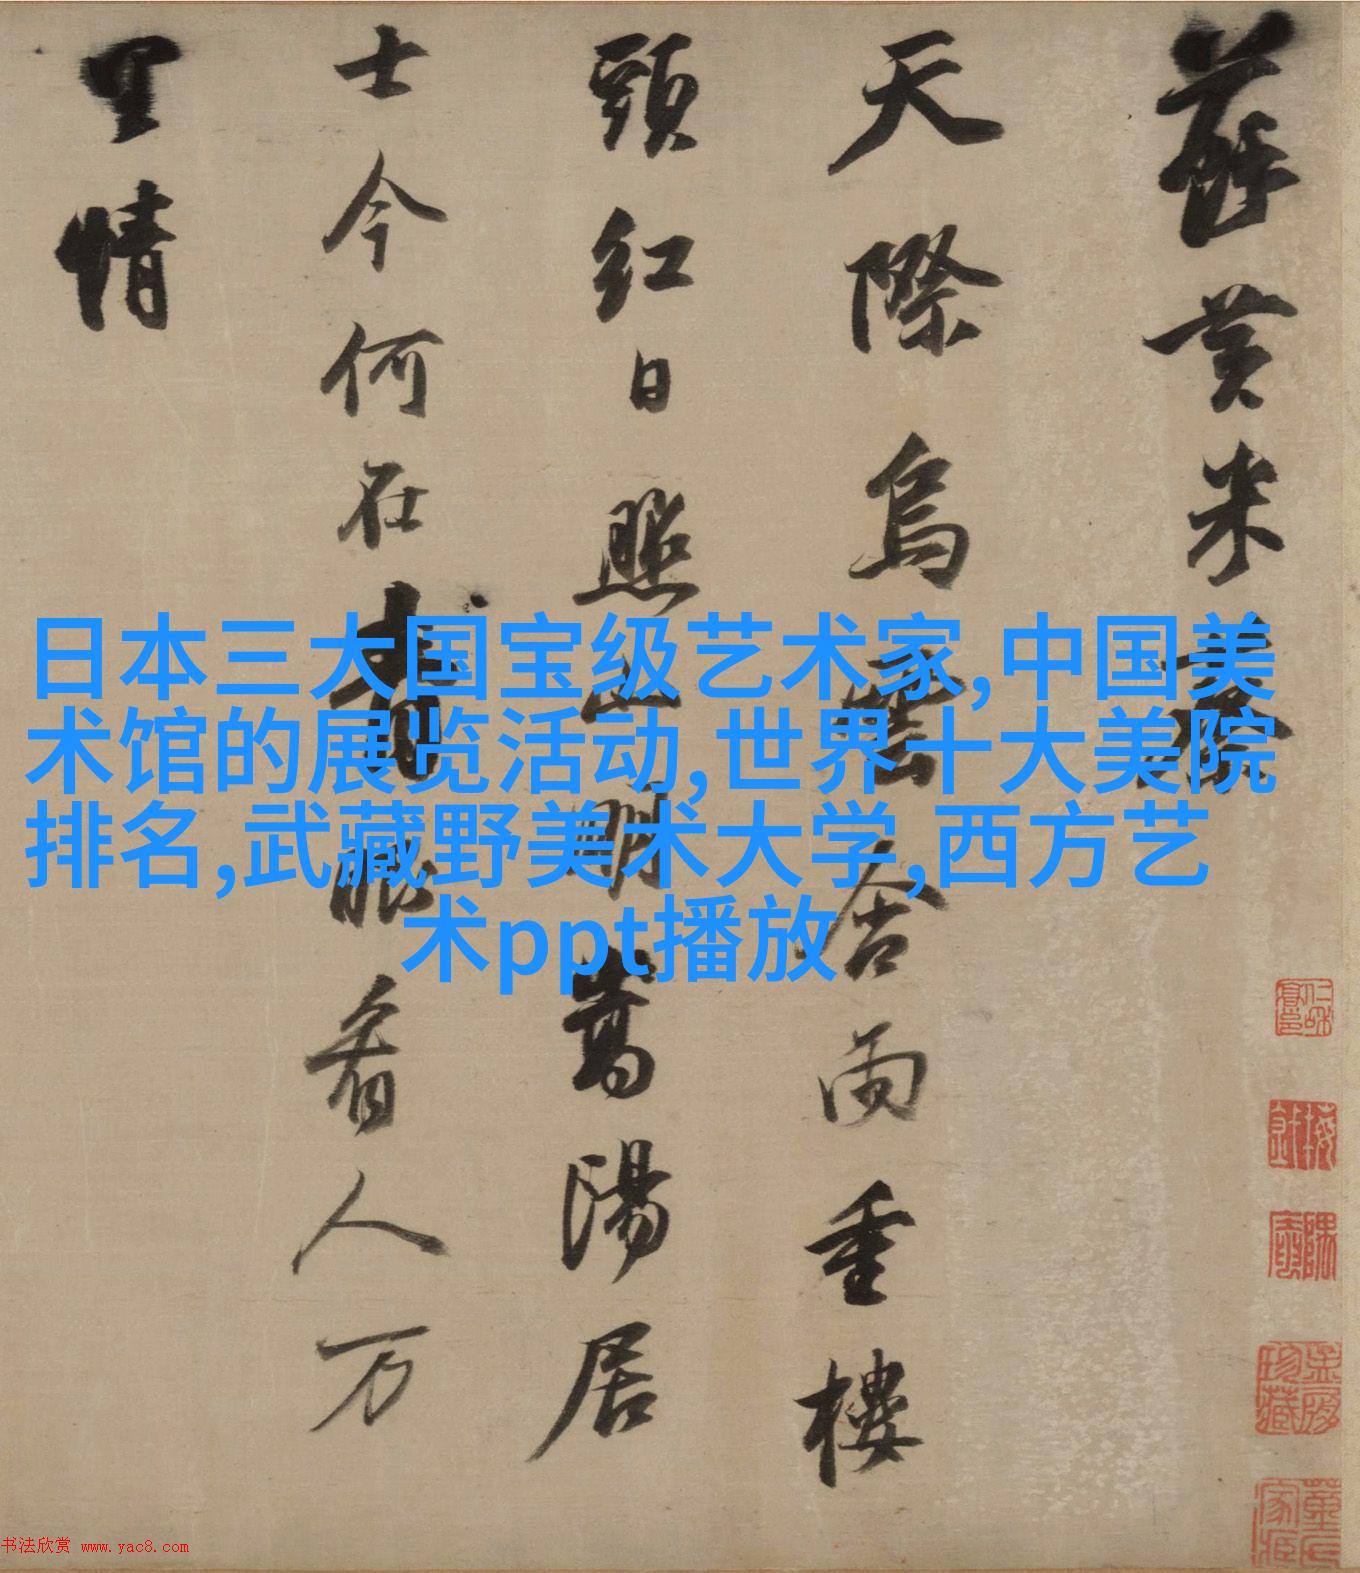 蘇黄米蔡
天際烏雲含雨重樓
頭紅日照山明嵩陽居
士今何在青眼看人万
里情
日本三大国宝级艺术家,中国美
术馆的展览活动,世界十大美院
排名,武藏野美术大学,西方艺
术ppt播放
书法欣赏 www.yac8.com